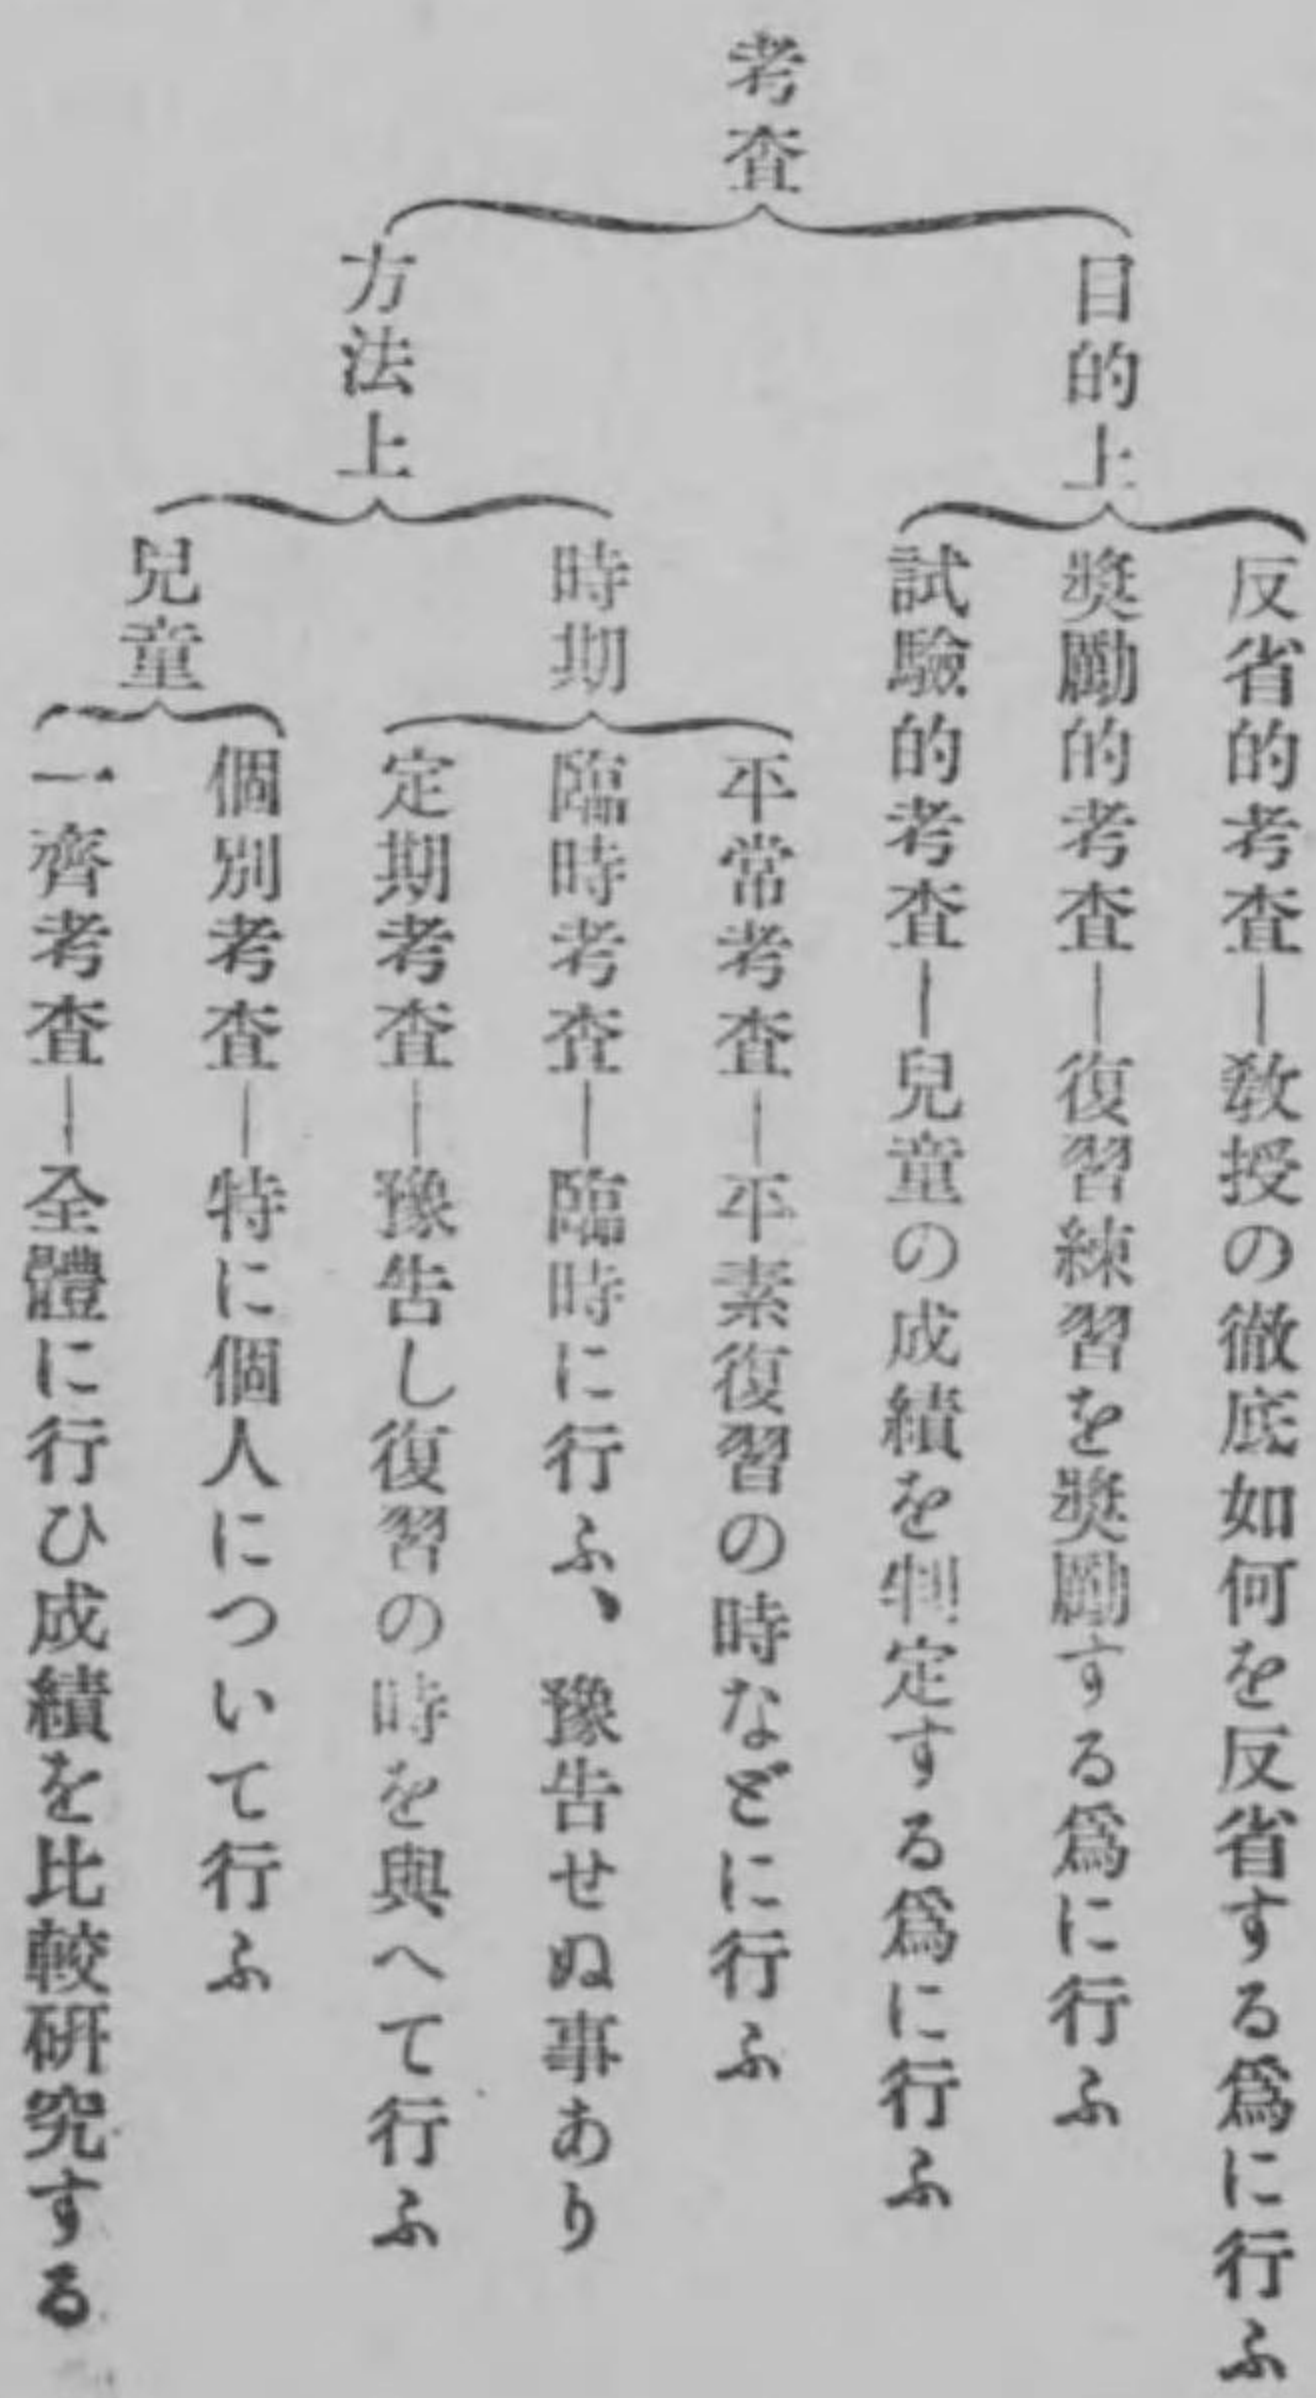 考査
目的上
反省的考査―敎授の徹底如何を反省する爲に行ふ
奬勵的考査―復習練習を奬勵する爲に行ふ
試驗的考査―兒童の成績を判定する爲に行ふ
方法上
時期
平常考査―平素復習の時などに行ふ
臨時考査―臨時に行ふ、豫告せぬ事あり
定期考査―豫告し復習の時を與へて行ふ
兒童
個別考査―特に個人について行ふ
一齊考査―全體に行ひ成績を比較硏究する